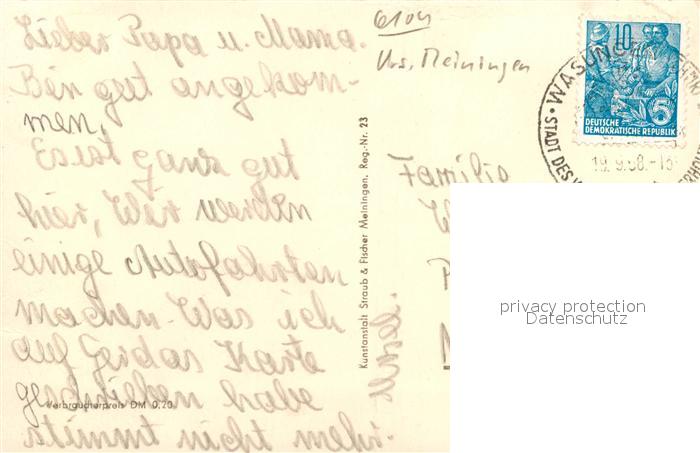 Lieber Papa u. Mama.
Bin gut angekom-
men.
Es ist ganz gut
hier, Wir werden
einige Autofahrten
machen. Was ich
auf Gerdas Karte
geschrieben habe
stimmt nicht mehr.
Verbraucherpreis DM 0,20
Kunstanstalt Straub & Fischer Meiningen, Reg.-Nr. 23
6104
Krs. Meiningen
Familie
10
5
DEUTSCHE
DEMOKRATISCHE REPUBLIK
WASUNGEN
STADT DES
19.9.58.-16
privacy protection
Datenschutz